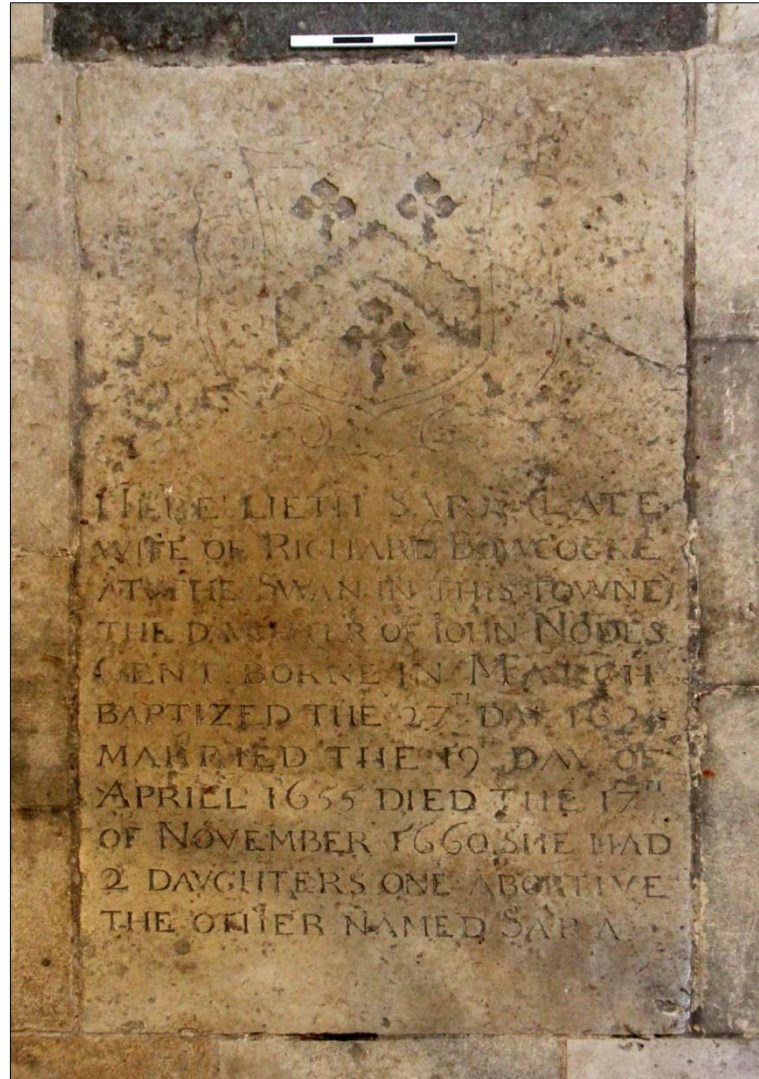 HERE LIETH SARA (LATE
WIFE OF RICHARD BOWCOCKE
AT THE SWAN IN THIS TOWNE)
THE DAVGHTER OF IOHN NODES
GENT BORNE IN MARCH
BAPTIZED THE 27TH DAY
MARRIED THE 19 DAY OF
APRILL 1655 DIED THE 17TH
OF NOVEMBER 1660 SHE HAD
2 DAVGHTERS ONE ABORTIVE
THE OTHER NAMED SARA